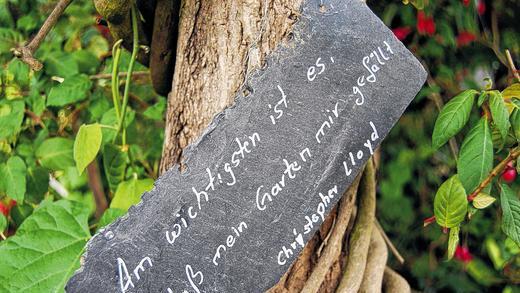 Am wichtigsten ist es,
daß mein Garten mir gefällt
Christopher Lloyd